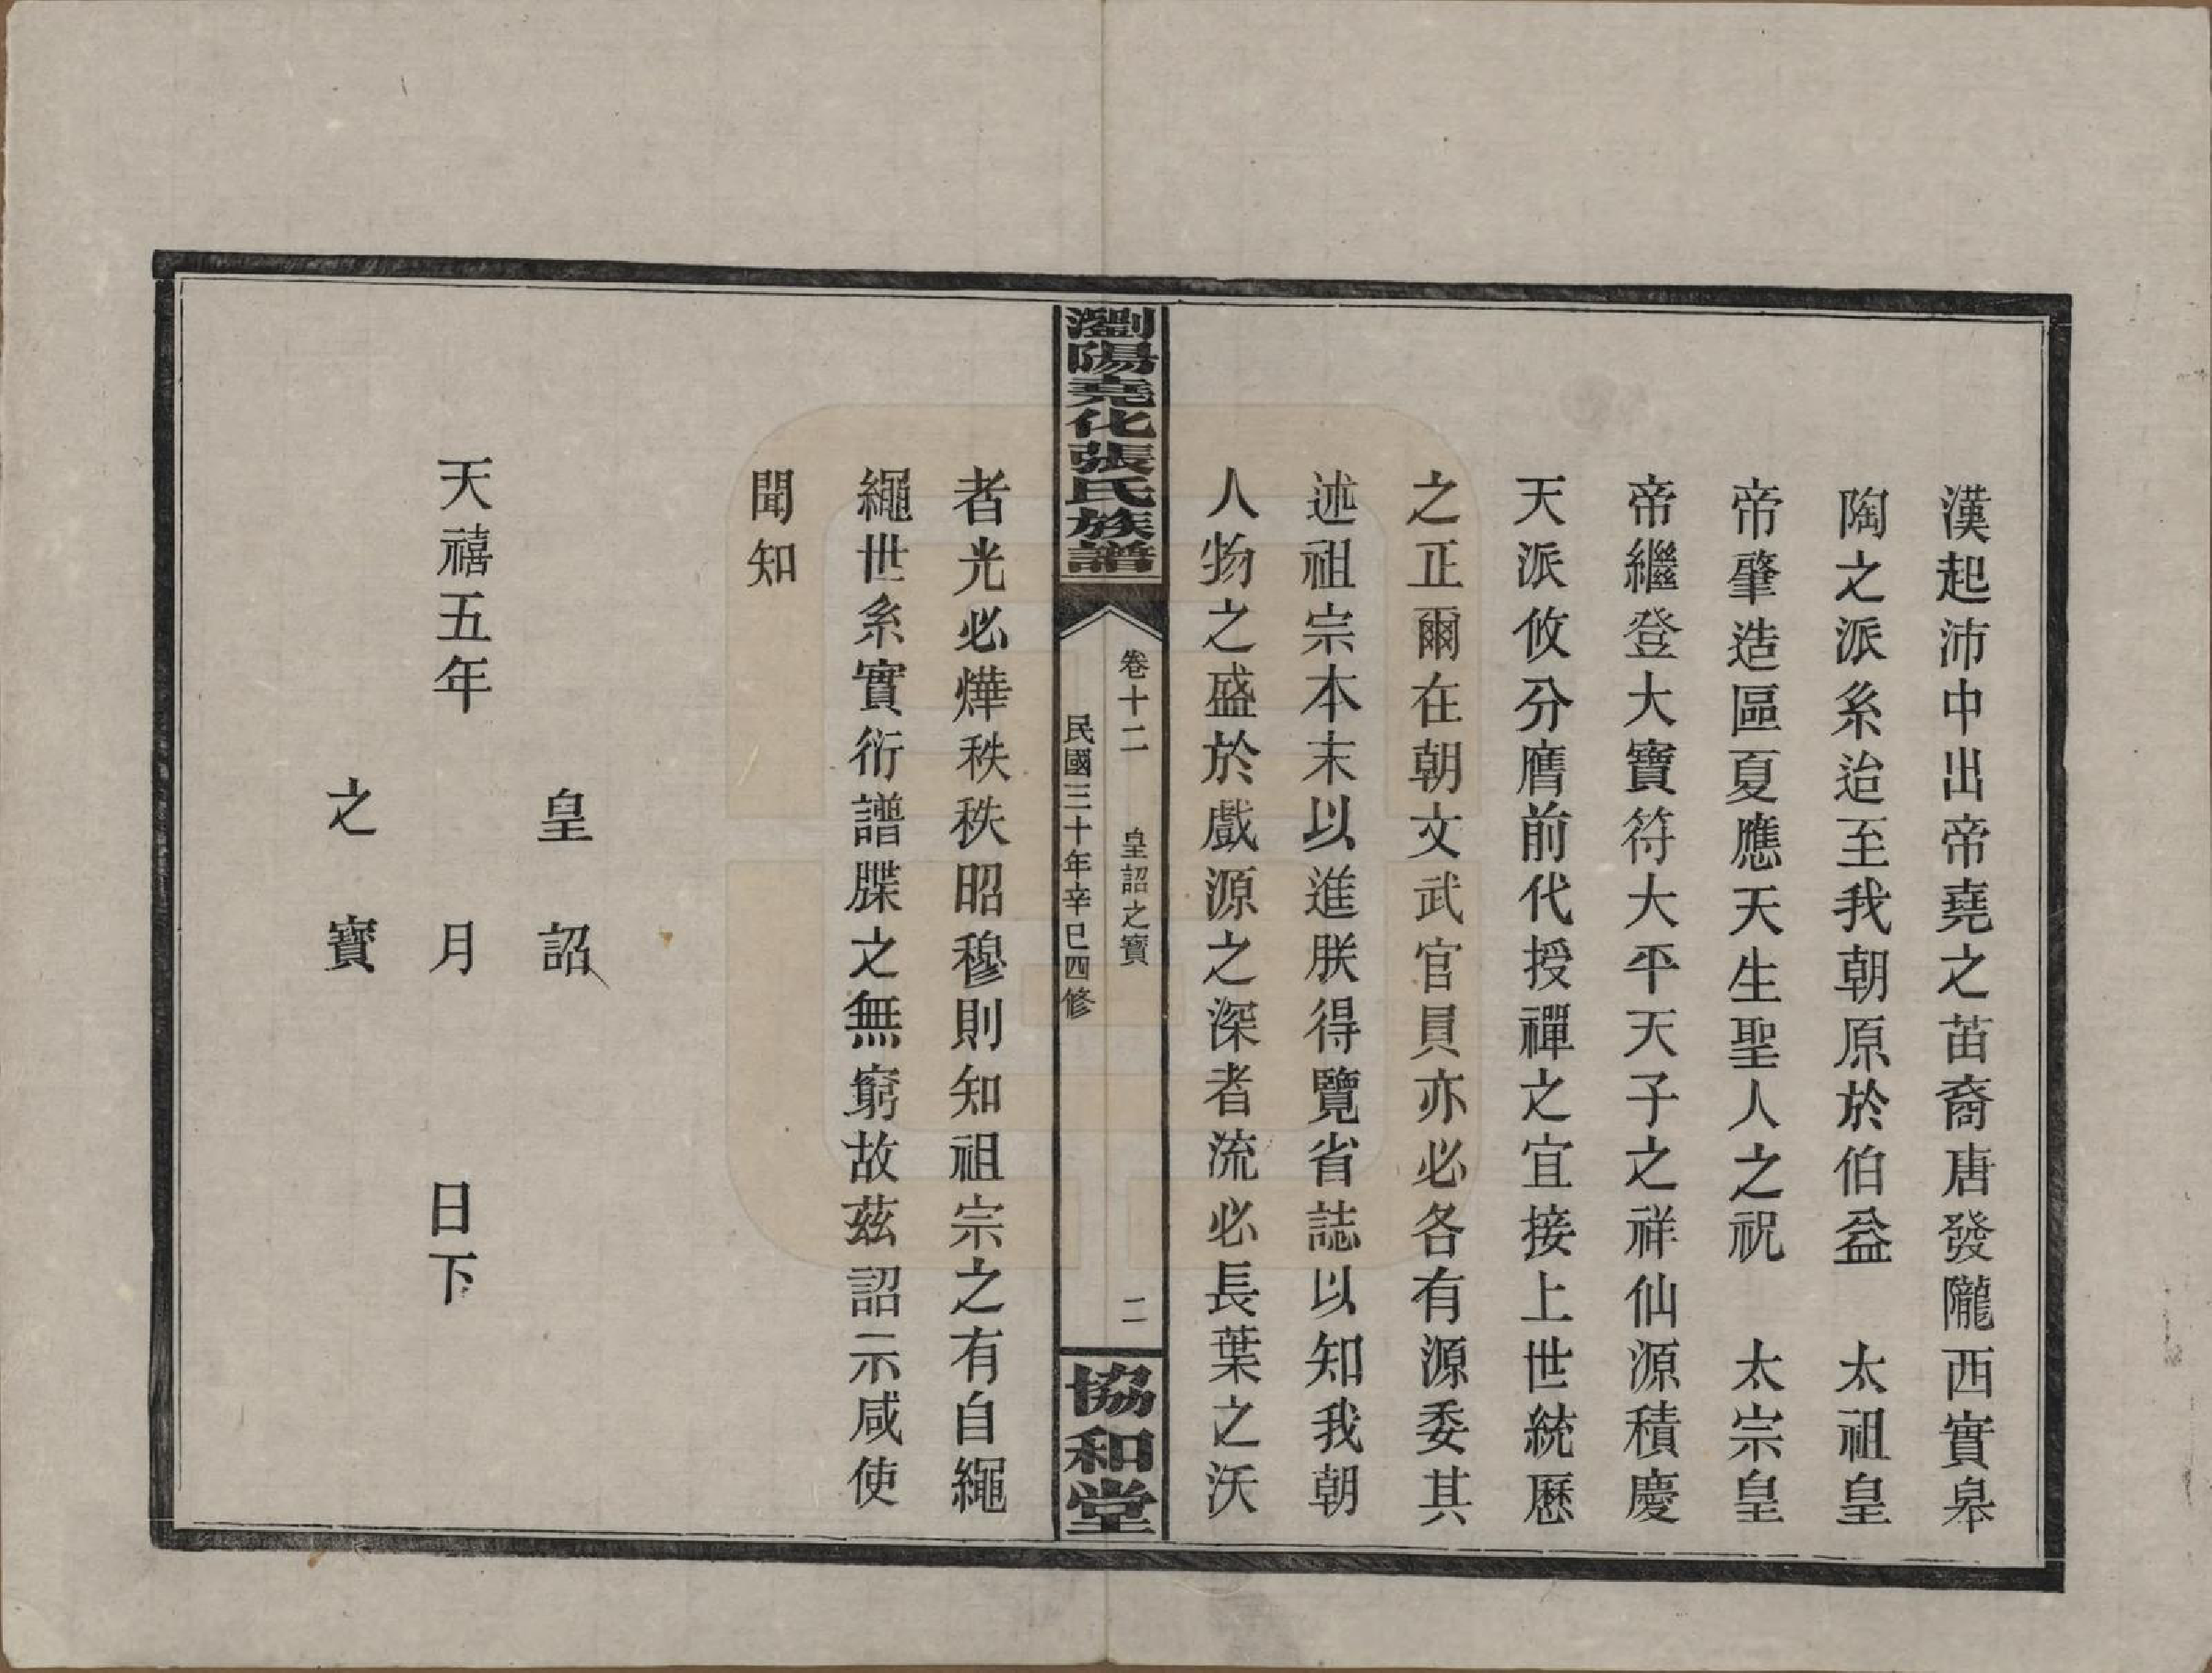 漢起沛中出帝堯之苗裔唐發隴西實皋
陶之派系迨至我朝原於伯益　太祖皇
帝肇造區夏應天生聖人之祝　太宗皇
帝繼登大寶符大平天子之祥仙源積慶
天派攸分膺前代授禪之宜接上世統歷
之正爾在朝文武官員亦必各有源委其
述祖宗本末以進朕得覽省誌以知我朝
人物之盛於戲源之深者流必長葉之沃
瀏陽堯化張氏族譜
卷十二　皇詔之寶　二
民國三十年辛巳四修
協和堂
者光必燁秩秩昭穆則知祖宗之有自繩
繩世系實衍譜牒之無窮故茲詔示咸使
聞知
皇　詔
天禧五年　月　日下
之　寶